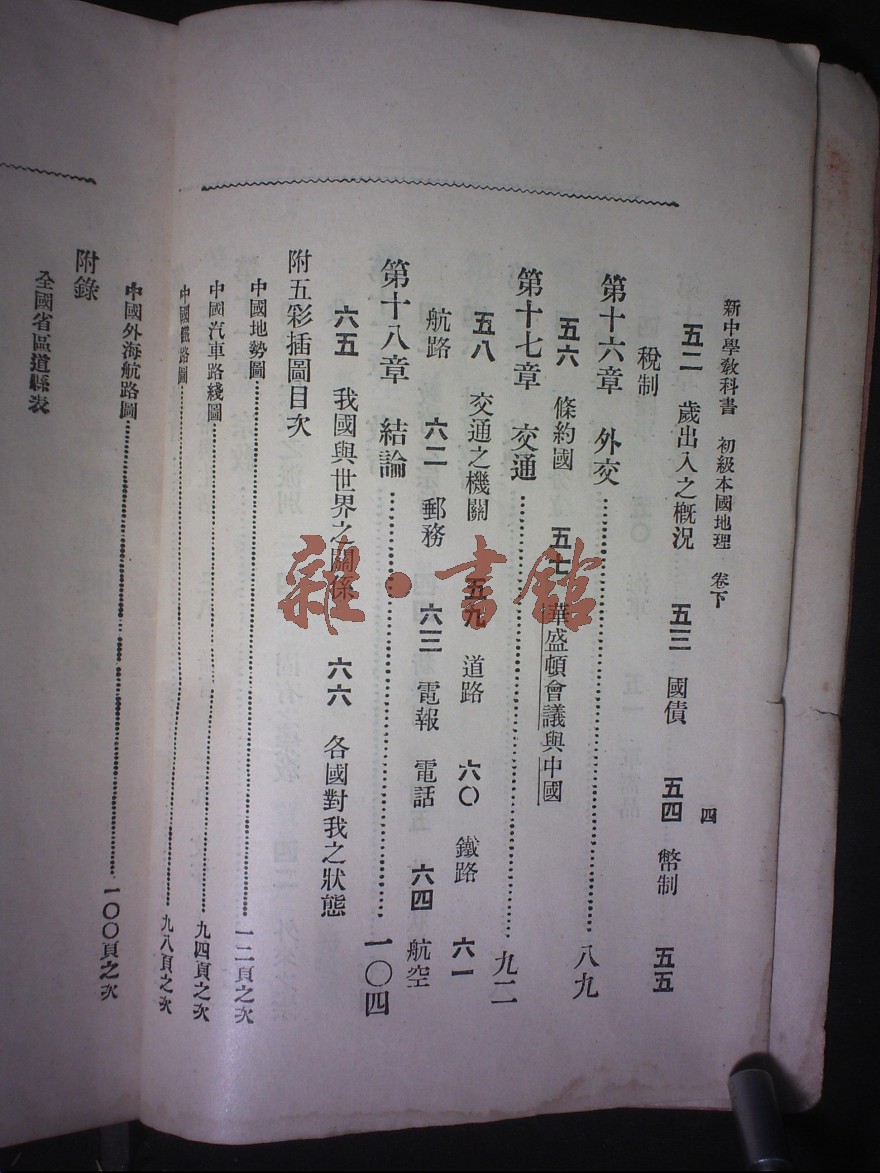 新中學教科書 初級本國地理 卷下 四
五二 歲出入之概況 五三 國債 五四 幣制 五五
稅制
第十六章 外交 八九
五六 條約國 五七 華盛頓會議與中國
第十七章 交通 九二
五八 交通之機關 五九 道路 六〇 鐵路 六一
航路 六二 郵務 六三 電報 電話 六四 航空
第十八章 結論 一〇四
六五 我國與世界之關係 六六 各國對我之狀態
附五彩插圖目次
中國地勢圖 一二頁之次
中國汽車路綫圖 九四頁之次
中國鐵路圖 九八頁之次
中國外海航路圖 一〇〇頁之次
附錄
全國省區道縣表
雜·書館